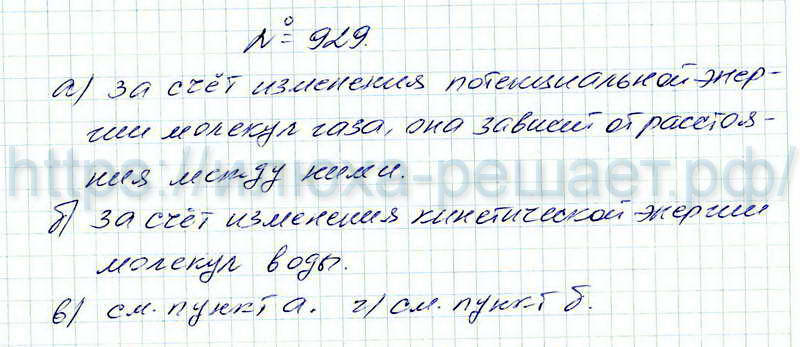 № 929.
а) за счёт изменения потенциальной энер-
гии молекул газа, она зависит от расстоя-
ния между ними.
https://илюха-решает.рф/
б) за счёт изменения кинетической энергии
молекул воды.
в) см. пункт а. г) см. пункт б.